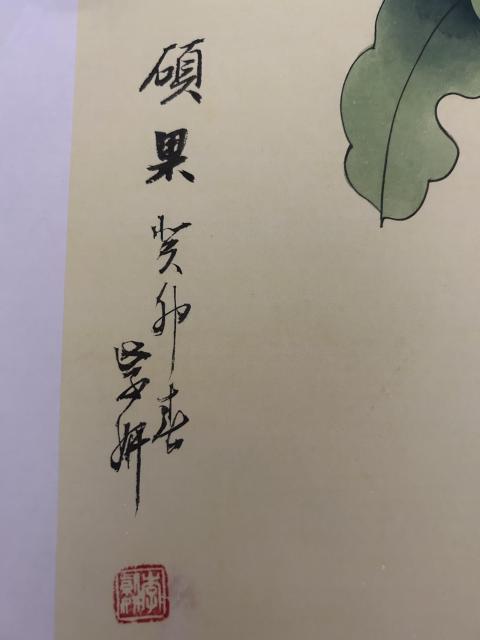 碩果 癸卯春
學妍